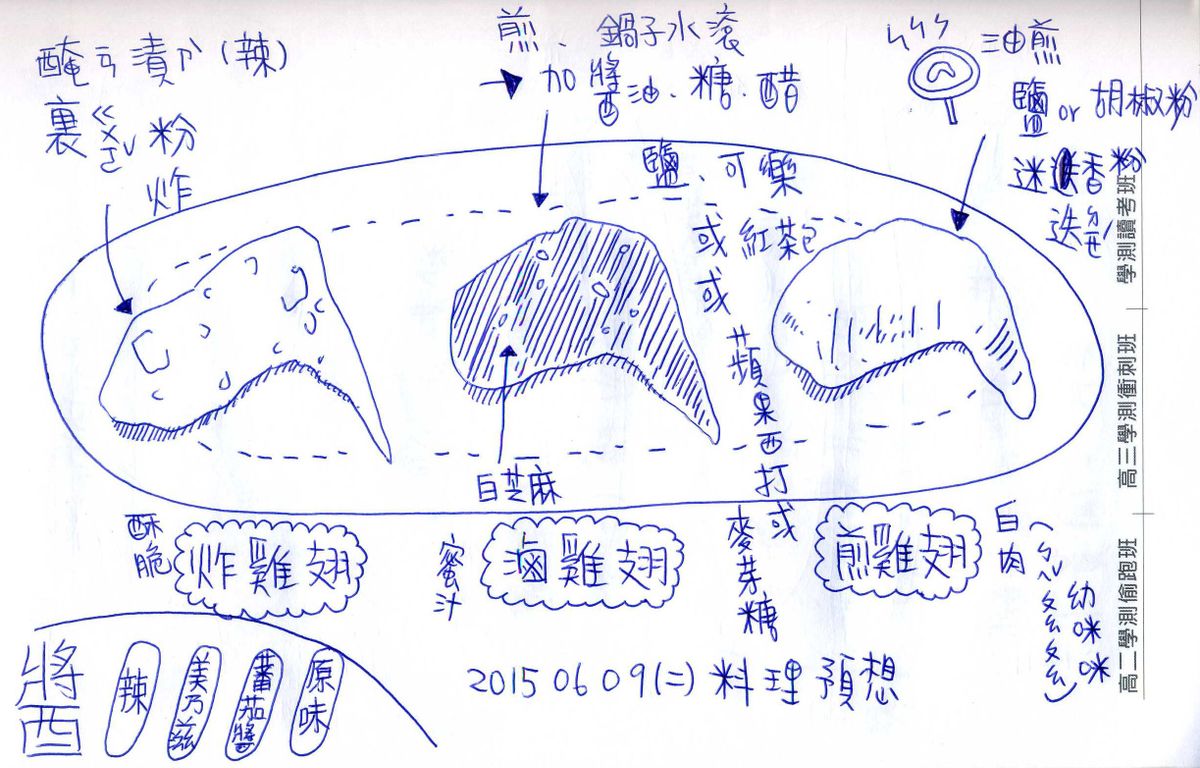 醃ㄢ漬ㄗˋ(辣)
裹ㄍㄨㄛˇ粉
炸
煎、鍋子水滾
加醬油、糖、醋
鹽、可樂
或紅茶包
或
蘋果西打或
麥芽糖
油煎
鹽 or 胡椒粉
迷迭香粉
迭ㄉㄧㄝˊ
白芝麻
酥脆
炸雞翅
蜜汁
滷雞翅
煎雞翅
白肉
幼咪咪
醬
辣
美乃滋
蕃茄醬
原味
2015 06 09 (二) 料理預想
學測讀考班
高三學測衝刺班
高二學測偷跑班